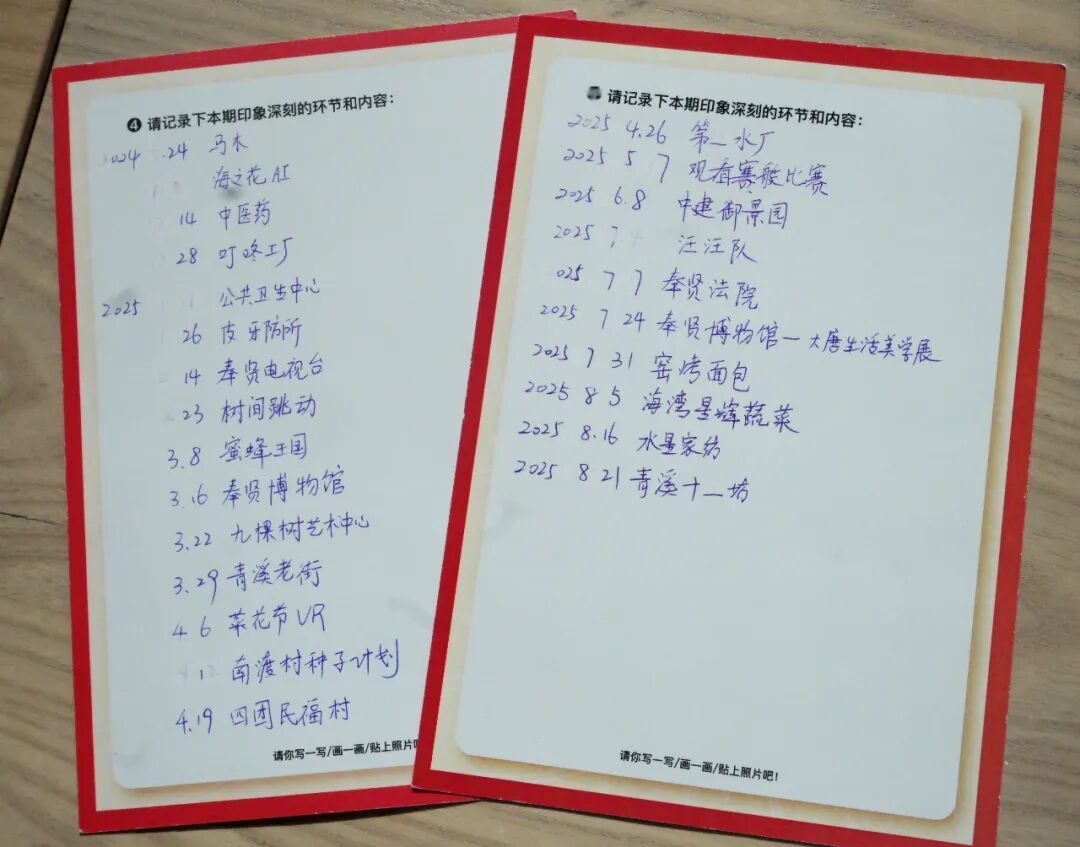 ❹ 请记录下本期印象深刻的环节和内容：
2024 .24 马木
海之花AI
14 中医药
28 叮咚工厂
2025 公共卫生中心
26 皮牙防所
14 奉贤电视台
23 树间跳动
3.8 蜜蜂王国
3.16 奉贤博物馆
3.22 九棵树艺术中心
3.29 青溪老街
4 6 菜花节VR
4.12 南渡村种子计划
4.19 四团民福村
请你写一写/画一画/贴上照片吧
请记录下本期印象深刻的环节和内容：
2025 4.26 第一水厂
2025 5 7 观看赛艇比赛
2025 6.8 中建御景园
2025 7.4 汪汪队
025 7 7 奉贤法院
2025 7 24 奉贤博物馆—大唐生活美学展
2025 7 31 窑烤面包
2025 8 5 海湾星辉蔬菜
2025 8.16 水星家纺
2025 8 21 青溪十一坊
请你写一写/画一画/贴上照片吧！